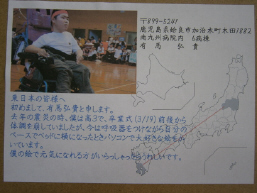 〒899-5241
鹿児島県姶良市加治木町木田1882
南九州病院内 6病棟
有馬弘貴
東日本の皆様へ
初めまして、有馬弘貴と申します。
去年の震災の時、僕は高3で、卒業式(3/19)前後から
体調を崩していましたが、今は呼吸器をつけながら自分の
ペースでベッドに横になったときパソコンで大好きな絵をか
いています。
僕の絵で元気になれる方がいらっしゃったらうれしいです。